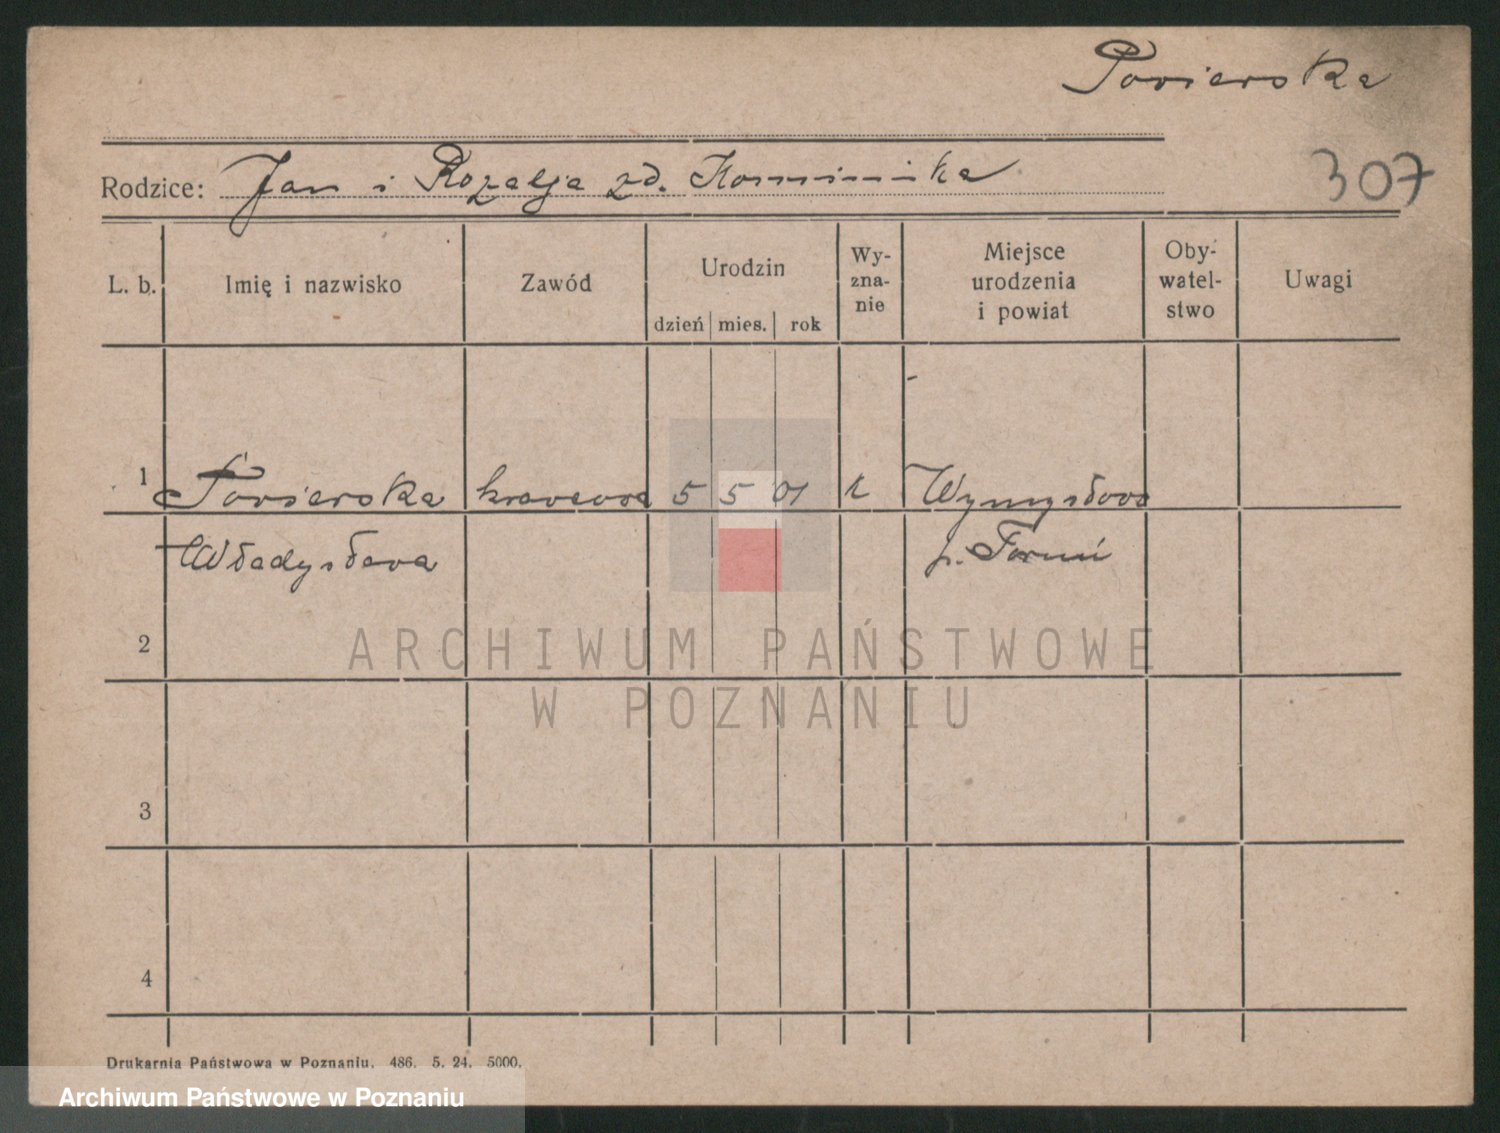 Powierska
Rodzice: Jan i Rozalja zd. Kominka
307
L. b. Imię i nazwisko Zawód Urodzin dzień mies. rok Wy-zna-nie Miejsce urodzenia i powiat Oby-watel-stwo Uwagi
1 Powierska krawcowa 5 5 01 k Wymysłowo
Władysława p. Toruń
2
ARCHIWUM PAŃSTWOWE
W POZNANIU
3
4
Drukarnia Państwowa w Poznaniu. 486. 5. 24. 5000.
Archiwum Państwowe w Poznaniu